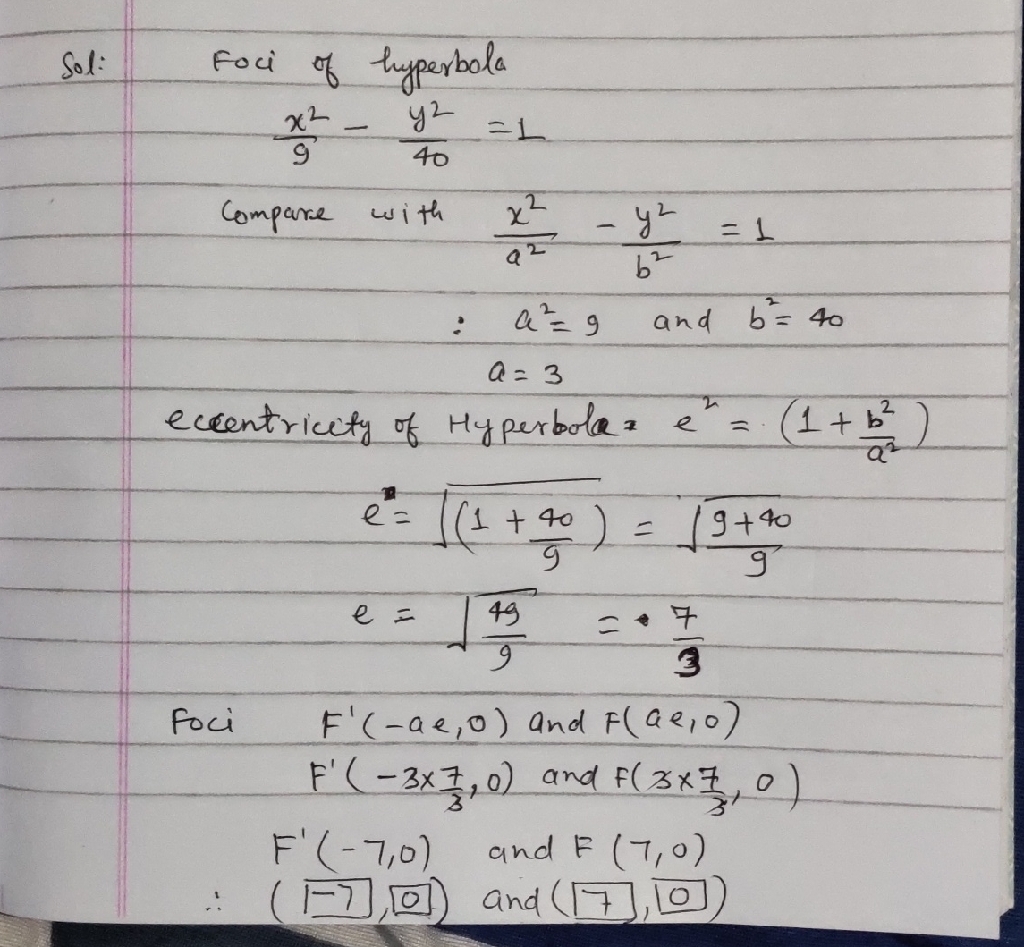 Sol: Foci of hyperbola
x²/9 - y²/40 = 1
Compare with x²/a² - y²/b² = 1
: a² = 9 and b² = 40
a = 3
eccentricity of Hyperbola = e² = (1 + b²/a²)
e = √(1 + 40/9) = √(9+40/9)
e = √(49/9) = 7/3
Foci F'(-ae,0) and F(ae,0)
F'(-3×7/3,0) and F(3×7/3,0)
F'(-7,0) and F(7,0)
∴ (-7,0) and (7,0)